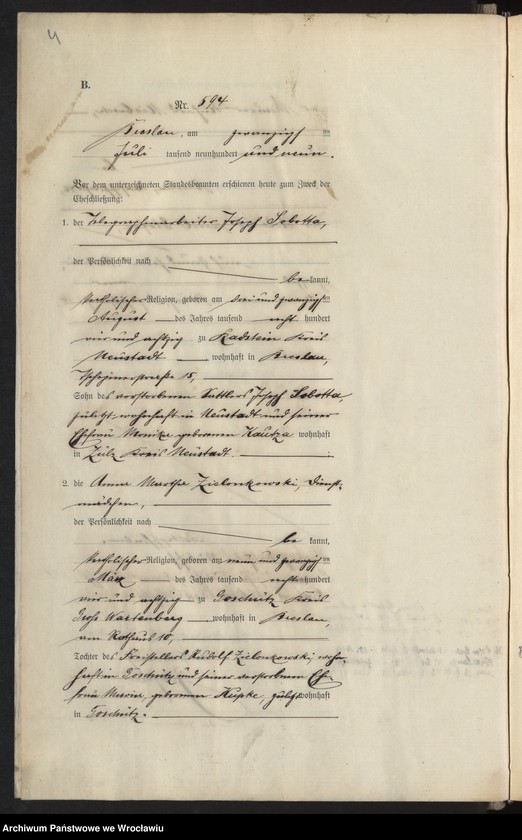 4
B.
Nr. 594
Breslau, am zwanzigsten
Juli tausend neunhundert und neun.
Vor dem unterzeichneten Standesbeamten erschienen heute zum Zweck der
Eheschließung:
1. der Telegraphenarbeiter Joseph Sobotta,
der Persönlichkeit nach
be kannt,
katholischer Religion, geboren am drei und zwanzigsten
August des Jahres tausend acht hundert
vier und achtzig zu Radstein Kreis
Neustadt, wohnhaft in Breslau,
15,
Sohn des verstorbenen Sattlers Joseph Sobotta,
zuletzt wohnhaft in Neustadt und seiner
Ehefrau Monika geborenen Kautza wohnhaft
in Zülz Kreis Neustadt.
2. die Anna Martha Zielonkowski, Dienst-
mädchen,
der Persönlichkeit nach
be kannt,
katholischer Religion, geboren am neun und zwanzigsten
März des Jahres tausend acht hundert
vier und achtzig zu Goschütz Kreis
Groß Wartenberg, wohnhaft in Breslau,
am Rathaus 10,
Tochter des Freistellers Rudolf Zielonkowski wohn-
haft in Goschütz und seiner verstorbenen Ehe-
frau Maria, geborenen Kupke, zuletzt wohnhaft
in Goschütz.
Archiwum Państwowe we Wrocławiu